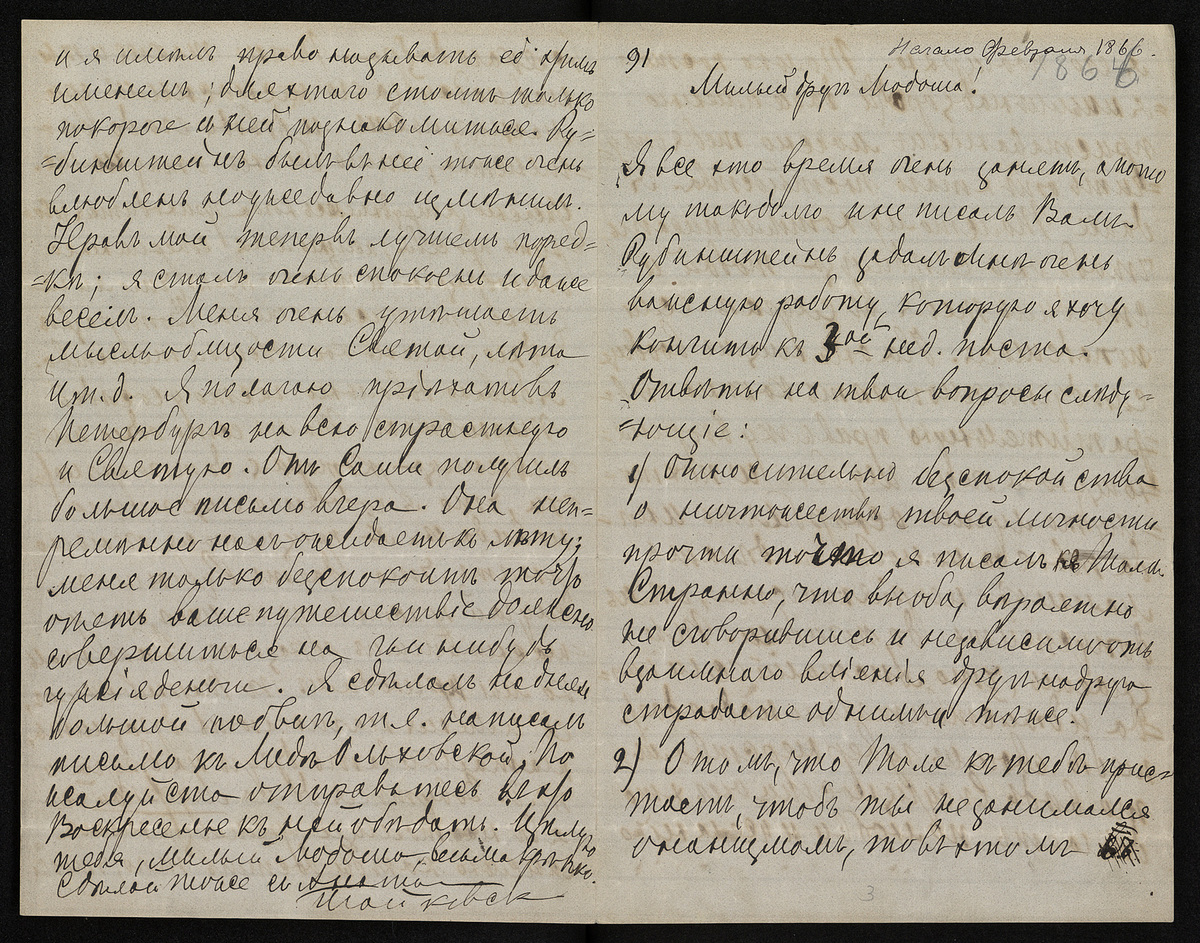 и я имѣлъ право называть её этимъ
именемъ; для этаго стоитъ только
покороче съ ней познакомиться. Ру=
=бинштейнъ былъ въ неё тоже очень
влюбленъ но уже давно измѣнилъ.
Нравъ мой теперь въ лучшемъ поряд=
=кѣ; я сталъ очень спокоенъ и даже
веселъ. Меня очень утѣшаетъ
мысль о близости Святой, лѣта
и т. д. Я полагаю пріѣхать въ
Петербургъ на всю страстную
и Святую. Отъ Саши получилъ
большое письмо вчера. Она неп=
ремѣнно насъ ожидаетъ къ лѣту;
меня только безпокоитъ то, что
опять ваше путешествіе должно
совершиться на чьи нибудь
чужія деньги. Я сдѣлалъ на дняхъ
большой подвигъ, т. е. написалъ
письмо къ Лидѣ Ольховской. По
жалуйста отправьтесь въ это
Воскресенье къ ней обѣдать. Цѣлую
тебя, милый Модоша, весьма крѣпко.
Сдѣлай тоже съ Анатош
Чайковск
91
Начало Февраля 1866.
1866
Милый другъ Модоша!
Я все это время очень занятъ, а пото
му такъ долго и не писалъ Вамъ.
Рубинштейнъ задалъ мнѣ очень
важную работу, которую я хочу
кончить къ 3ей нед. поста.
Отвѣты на твои вопросы слѣду=
=ющіе:
1) Относительно безпокойства
о ничтожествѣ твоей личности
прочти то что я писалъ къ Толѣ.
Странно, что вы оба, вѣроятно
не сговорившись и независимо отъ
взаимнаго вліянія другъ на друга
страдаете однимъ и тѣмъ же.
2) О томъ, что Толя къ тебѣ прис=
таетъ, чтобъ ты не занимался
онанизмомъ, то въ этомъ
3